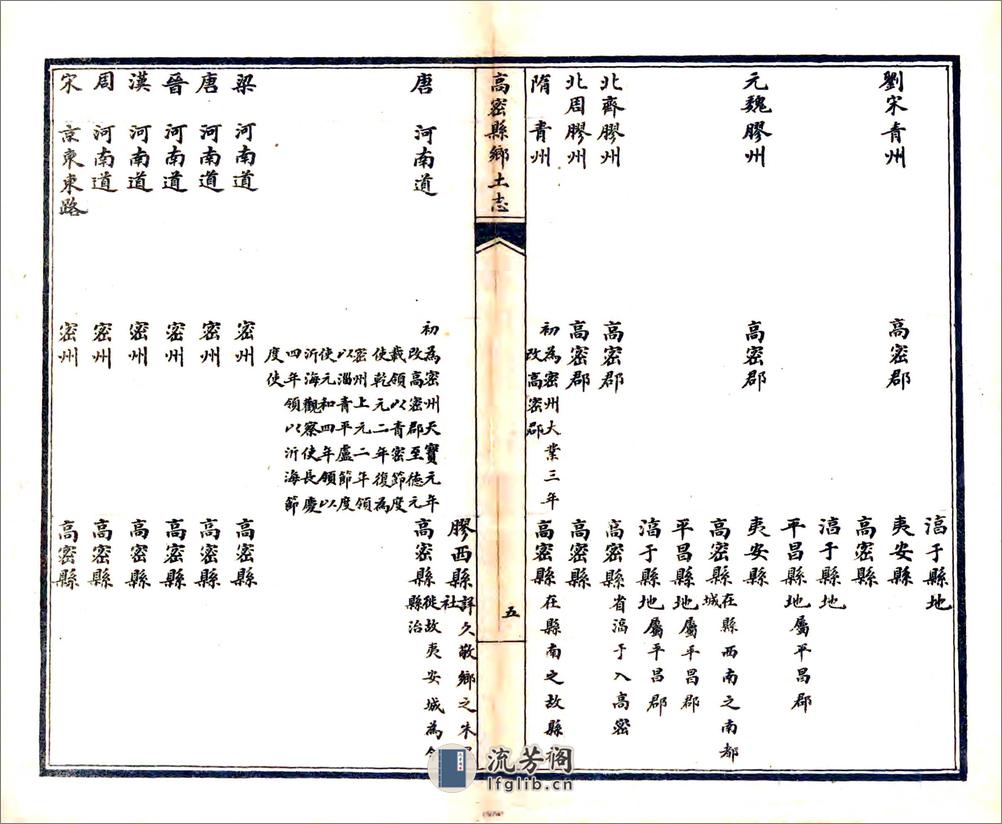 湻于縣地
劉宋青州 高密郡 夷安縣
高密縣
湻于縣地
平昌縣地屬平昌郡
元魏膠州 高密郡 夷安縣
高密縣在縣西南之南都城
平昌縣地屬平昌郡
湻于縣地屬平昌郡
北齊膠州 高密郡 高密縣省湻于入高密
北周膠州 高密郡 高密縣
隋 青州 初為密州大業三年改高密郡 高密縣在縣南之故縣
高密縣鄉土志 五
膠西縣詳久敬鄉之朱社
唐 河南道 初為密州天寶元年
改高密郡至德元
載領以青密節度
使乾元二年復為
密州上元二年領
以淄青平盧節度
使元和四年領以
沂海觀察使長慶
四年領以沂海節
度使
高密縣徙故夷安城為今縣治
梁 河南道 密州 高密縣
唐 河南道 密州 高密縣
晉 河南道 密州 高密縣
漢 河南道 密州 高密縣
周 河南道 密州 高密縣
宋 京東東路 密州 高密縣
流芳阁
lfglib.cn